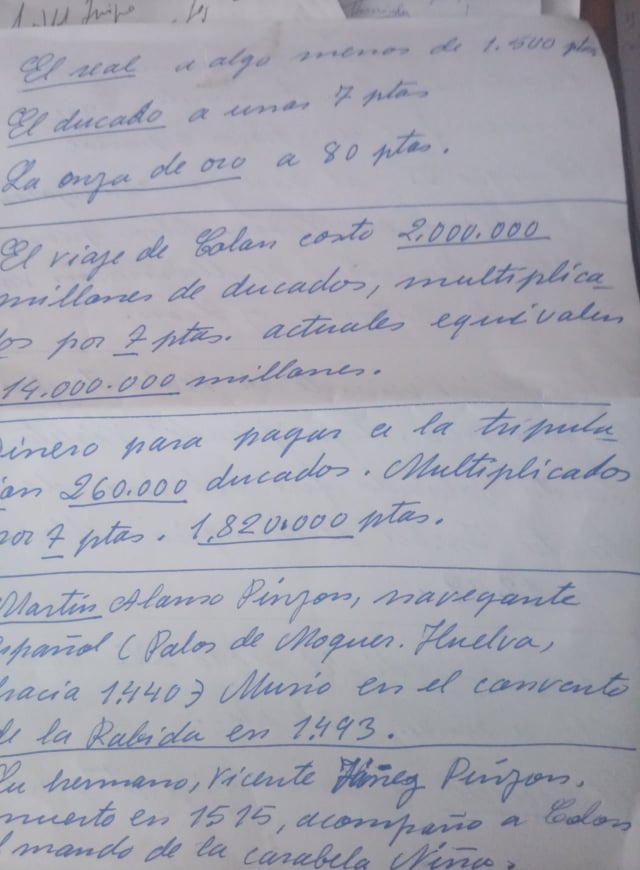 El real a algo menos de 1.500 ptas
El ducado a unas 7 ptas
La onza de oro a 80 ptas.
El viaje de Colon costo 2.000.000
millones de ducados, multiplica
os por 7 ptas. actuales equivalen
14.000.000 millones.
Dinero para pagar a la tripula
ion 260.000 ducados. Multiplicados
por 7 ptas. 1.820.000 ptas.
Martin Alonso Pinzon, navegante
español (Palos de Moguer. Huelva,
hacia 1.440) Murio en el convento
de la Rabida en 1.493.
Su hermano, Vicente Yáñez Pinzon,
muerto en 1515, acompaño a Colon
l mando de la carabela Niña.